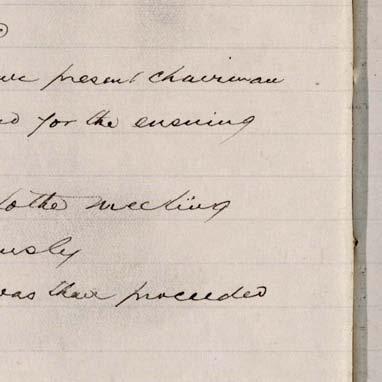 present Chairman
for the ensuing
to the meeting
ously
was then proceeded